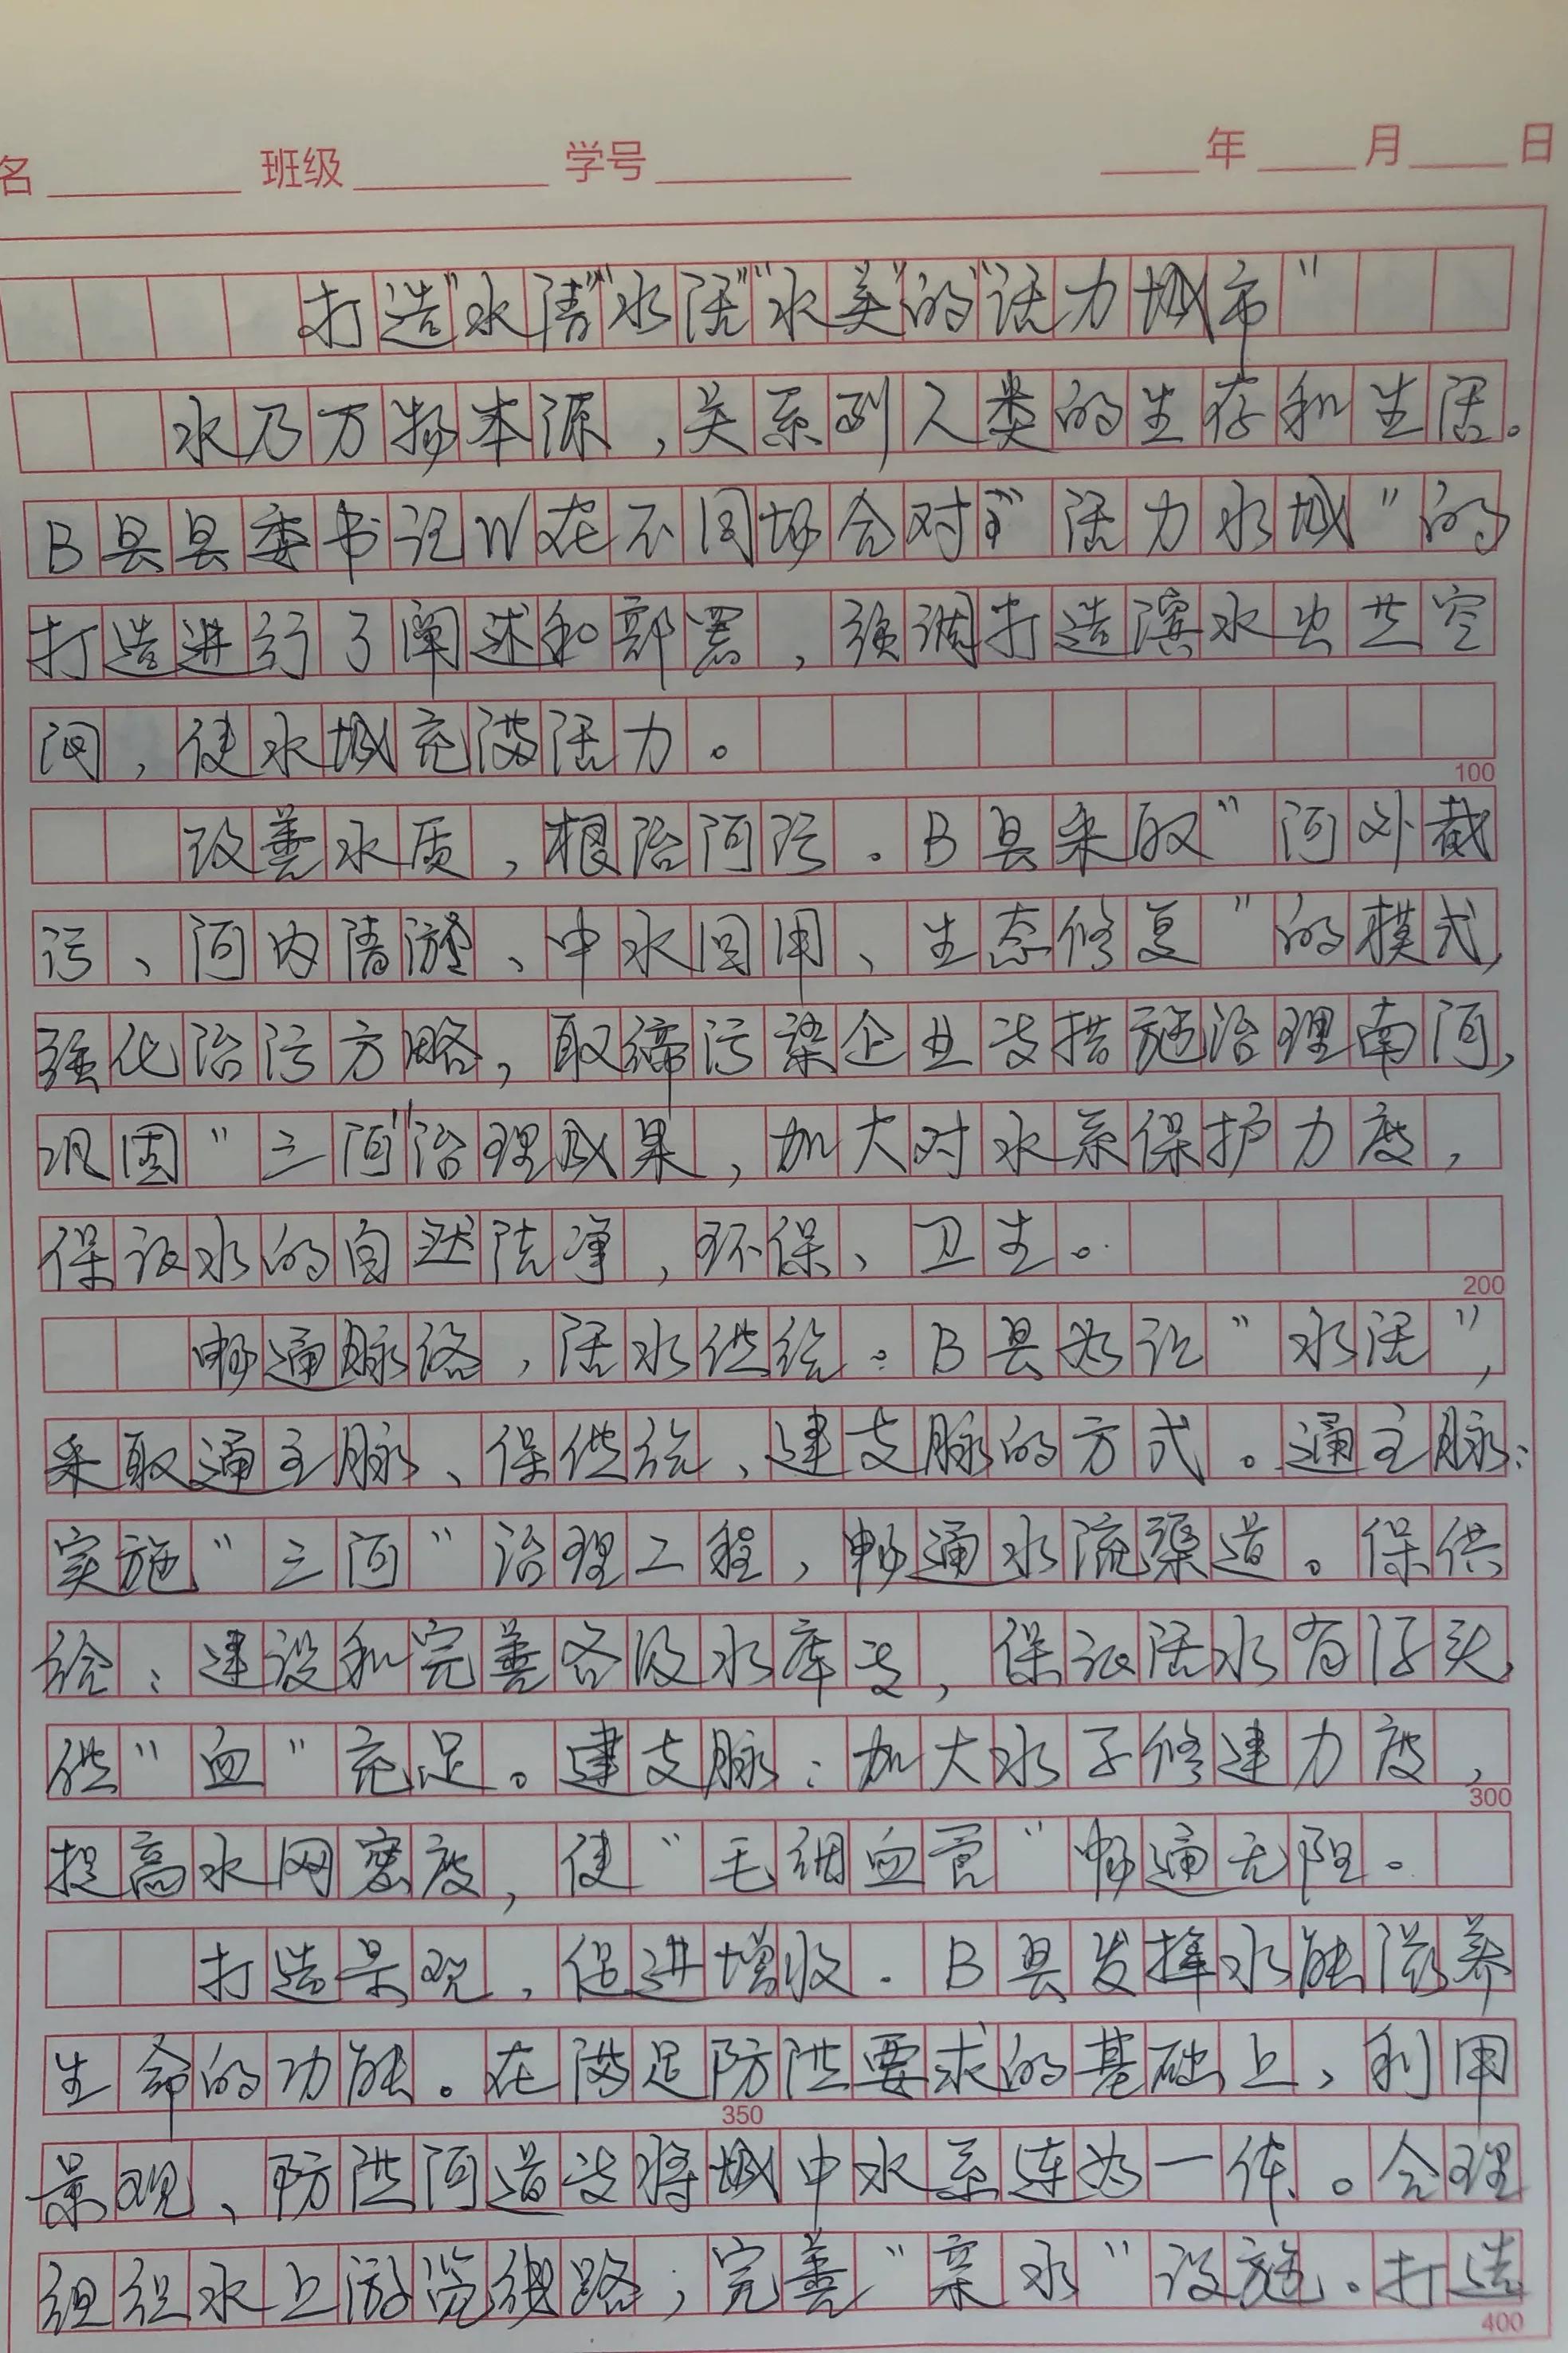 名 班级 学号 年 月 日
打造"水清""水活""水美"的"活力城市"
水乃万物本源,关系到人类的生存和生活。
B县县委书记W在不同场合对"活力水城"的
打造进行了阐述和部署,强调打造滨水公共空
间,使水城充满活力。
100
改善水质,根治河污。B县采取"河外截
污、河内清淤、中水回用、生态修复"的模式,
强化治污方略,取缔污染企业等措施治理南河,
巩固"三河"治理成果,加大对水系保护力度,
保证水的自然洁净,环保、卫生。
200
畅通脉络,活水供给。B县为让"水活",
采取通主脉、保供给、建支脉的方式。通主脉:
实施"三河"治理工程,畅通水流渠道。保供
给:建设和完善各级水库等,保证活水有源头,
供"血"充足。建支脉:加大水系修建力度,
300
提高水网密度,使"毛细血管"畅通无阻。
打造景观,促进增收。B县发挥水能滋养
生命的功能。在满足防洪要求的基础上,利用
350
景观、防洪河道等将城中水系连为一体。合理
组织水上游览线路,完善"亲水"设施。打造
400